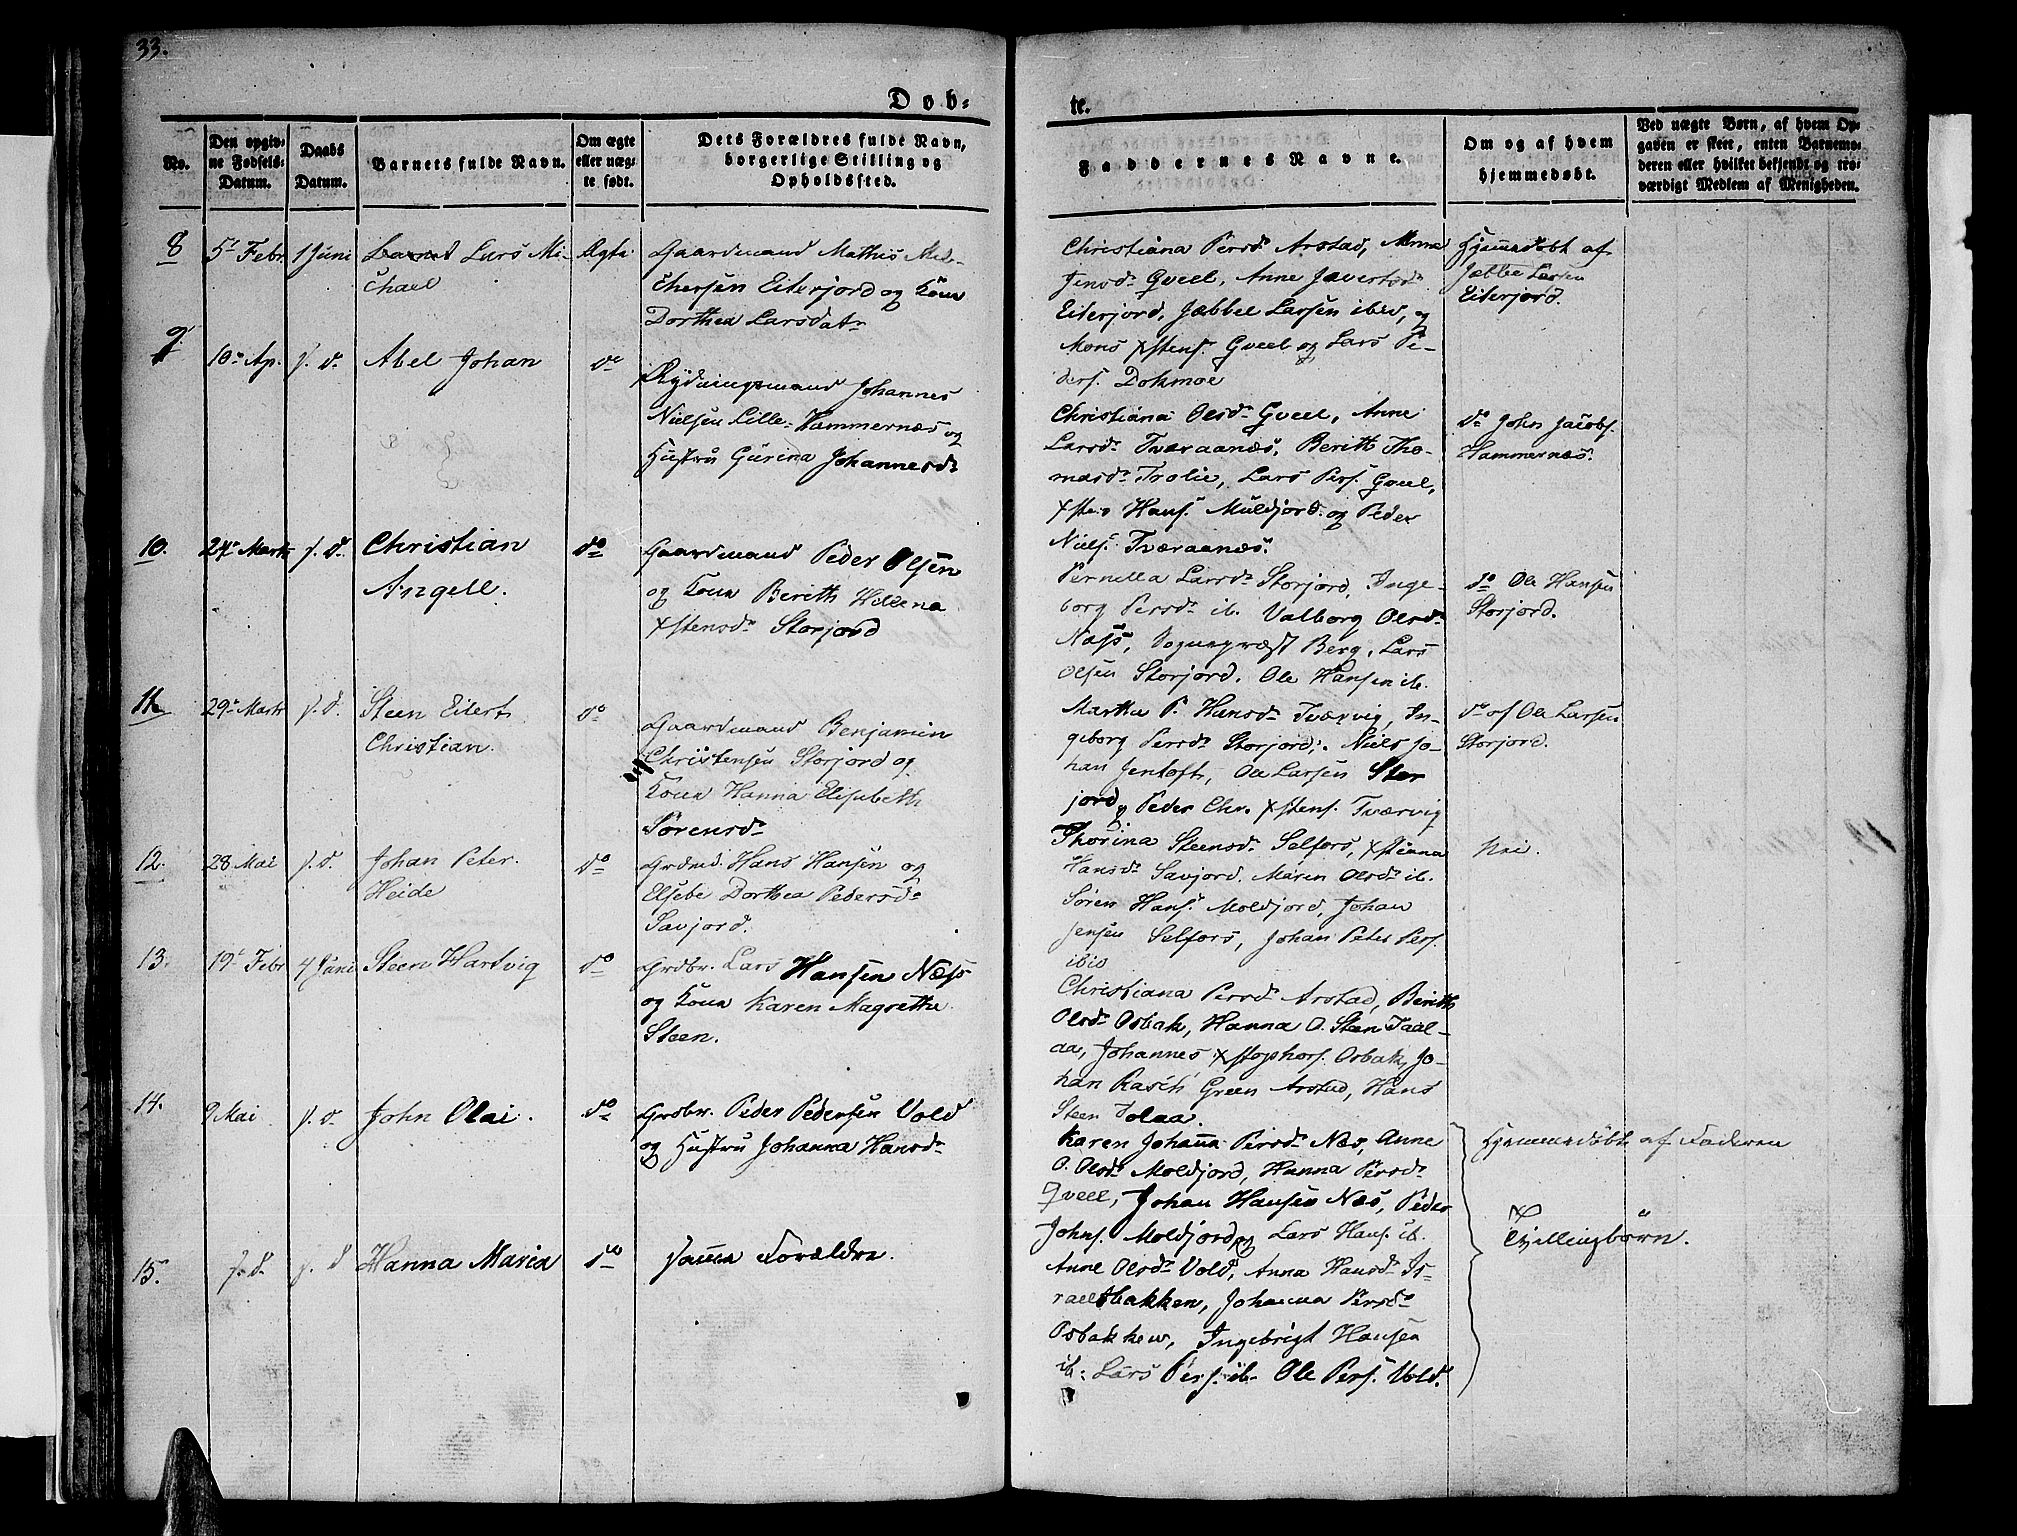 33.
Døb-
te.
No.
Den opgiv-
ne Fødsels-
Datum.
Daabs
Datum.
Barnets fulde Navn.
Om ægte
eller uæg-
te født.
Dets Forældres fulde Navn,
borgerlige Stilling og
Opholdssted.
Faddernes Navne.
Om og af hvem
hjemmedøbt.
Ved uægte Børn, af hvem Op-
gaven er skeet, enten Barnemo-
deren eller hvilket bekjendt og tro-
værdigt Medlem af Menigheden.
8
5t Febr.
1 Juni
Barnet Lars Mi-
chael
Ægte
Gaardmand Mathis
chersen Eiterjord og Kone
Dorthea Larsdatr
Christiana Persdr Arstad, Anna
Jensdr Qveel, Anne
Eiterjord, Jæbbel Larsen ibid, og
Mons Xstens. Qveel og Lars Pe-
ders. Dokmoe
Hjemmedøbt af
Jæbbe Larsen
Eiterjord.
9
10de Ap.
s. d.
Abel Johan
do
Rydningsmand Johannes
Nielsen Lille-Hammernæs og
Hustru Gurina Johannesdr
Christiana Olsdr Qveel, Anne
Larsdr Tværaanæs, Berith Tho-
masdr Trolie, Lars Pers. Qveel,
Xsten Hans. Muldjord og Peder
Niels. Tværaanæs.
do John Jacobs.
Hammernæs.
10.
24de Marts
s. d.
Christian
Angell.
do
Gaardmand Peder Olsen
og Kone Berith Hellena
Xstensdr Storjord
Pernella Larsdr Storjord, Inge-
borg Persdr ib. Valborg Olsdr
Næss, Sognepræst Berg, Lars
Olsen Storjord, Ole Hansen ib.
do Ole Hansen
Storjord.
11.
29de Marts
s. d.
Steen Eilert
Christian.
do
Gaardmand Benjamin
Christensen Storjord og
Kone Hanna Elisabeth
Sørensdr
Martha P. Hansdr Tværvig, In-
geborg Persdr Storjord, Niels Jo-
han Jentoft, Ole Larsen Stor
jord og Peder Chr. Xstens. Tværvig
do af Ole Larsen
Storjord.
12.
28 Mai
s. d.
Johan Peter
Heide
do
Grdmd. Hans Hansen og
Elsebe Dorthea Pedersdr
Savjord.
Thorina Steensdr Selfors, Xstianna
Hansdr Savjord. Maren Olsdr ib.
Søren Hans. Moldjord, Johan
Jensen Selfors, Johan Peter Pers.
ibid
Nei.
13.
19de Febr
4 Juni
Steen Hartvig
do
Grdbr. Lars Hansen Næss
og Kone Karen Magrethe
Steen.
Christiana Persdr Arstad, Berith
Olsdr Osbak, Hanna O. Steen
aa, Johannes Xstophers. Osbak, Jo-
han Rasch Green Arstad, Hans
Steen
14.
9 Mai
s. d.
John Olai.
do
Grdbr. Peder Pedersen Vold
og Hustru Johanna Hansdr
Karen Johanna Persdr Næs, Anne
O. Olsdr Moldjord, Hanna Persdr
Qveel, Johan Hansen Næs, Peder
Johns. Moldjord og Lars Hans. ib.
Hjemmedøbt af Faderen
Tvillingbørn.
15.
s. d.
s. d
Hanna Maria
do
samme Forældre.
Anne Olsdr Vold, Anna Hansdr Is-
raelsbakken, Johanna Persdr
Osbakken, Ingebrigt Hansen
ib. Lars Pers. ib. Ole Pers. Vold.